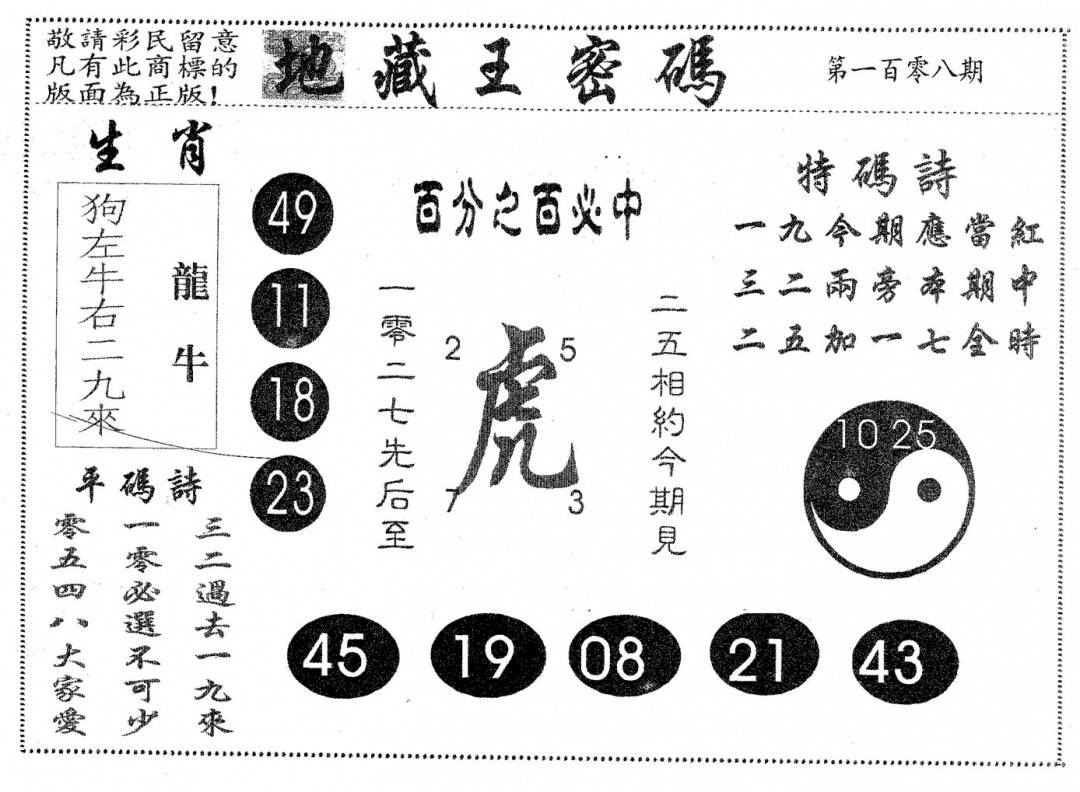 敬請彩民留意
凡有此商標的
版面為正版!
地藏王密碼
第一百零八期
生肖
狗左牛右二九來
龍牛
49
11
18
23
百分之百必中
一零二七先后至
2
5
虎
7
3
二五相約今期見
特碼詩
一九今期應當紅
三二兩旁本期中
二五加一七全時
10 25
平碼詩
三二過去一九來
一零必選不可少
零五四八大家愛
45
19
08
21
43